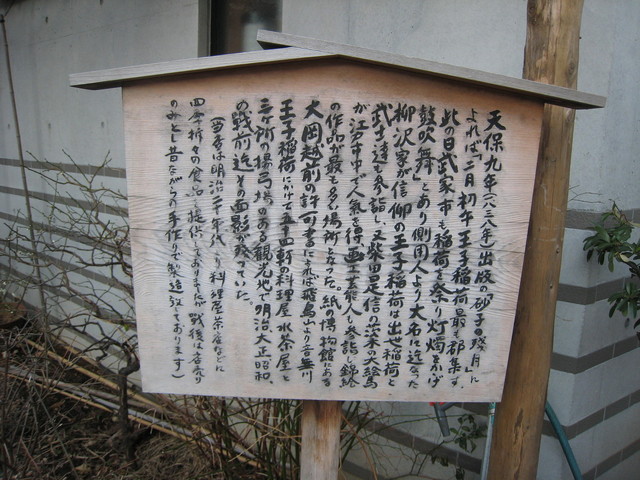 天保九年(一八三八年)出版の「砂子の残月」に
よれば「二月初午王子稲荷最も群集す
此の日武家市も稲荷を祭り灯燭をかゝげ
鼓吹舞」とあり側用人より大名に迄なった
柳沢家が信仰の王子稲荷は出世稲荷と
武士達も参詣し又柴田是信の茨木の大絵馬
が江戸市中で人気を得画工芸人も参詣し錦絵
の作品が最も多い場所となった。紙の博物館にある
大岡越前の許可書によれば飛鳥山より音無川
王子稲荷にかけて五十四軒の料理屋水茶屋と
三ヶ所の揚弓場のある観光地で明治、大正昭和、
の戦前迄その面影が残っていた。
(当店は明治二十年代より料理屋茶店などに
四季折々の食品を提供しておりましたが戦後は店売り
のみとし昔ながらの手作りで製造致しております)